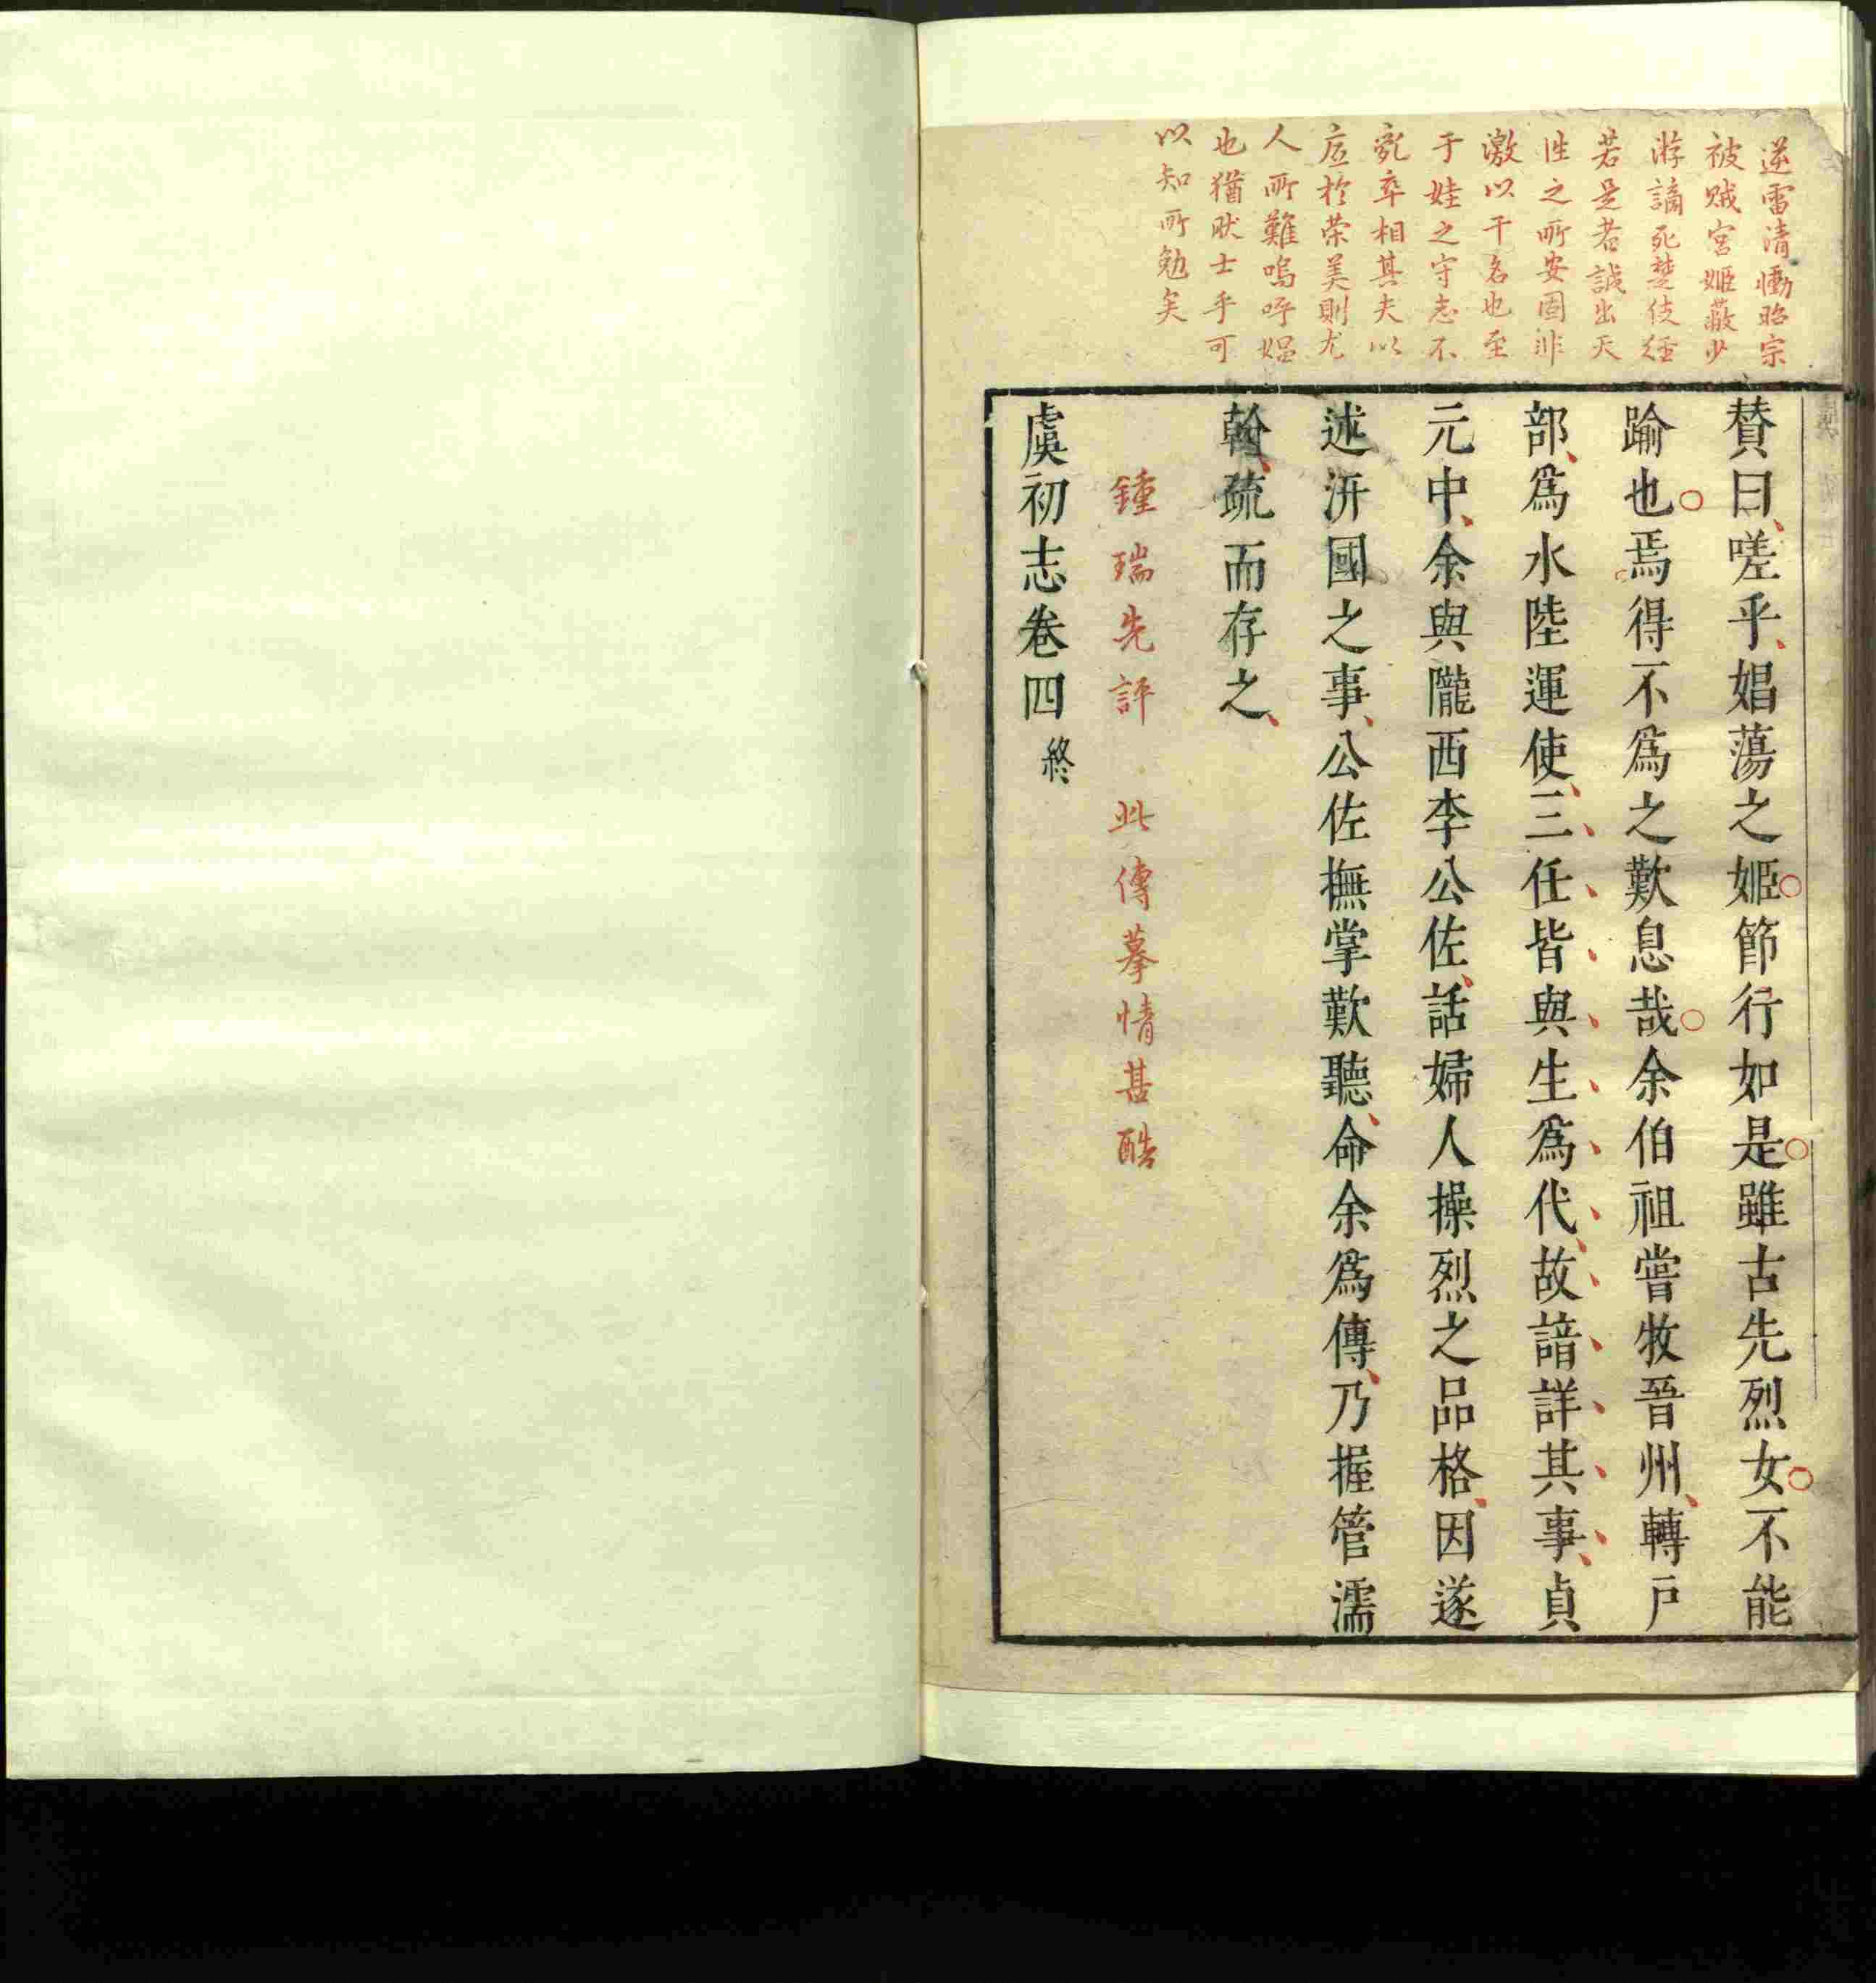 逆雷清慟昭宗
被賊宮姬蔽少
游謫死楚伎經
若是者誠出天
性之所安固非
激以干名也至
于娃之守志不
亂卒相其夫以
底於荣美則尤
人所難嗚呼娼
也猶然士乎可
以知所勉矣
賛曰嗟乎娼蕩之姬節行如是雖古先烈女不能
踰也焉得不爲之歎息哉余伯祖嘗牧晉州轉戸
部爲水陸運使三任皆與生爲代故諳詳其事貞
元中余與隴西李公佐話婦人操烈之品格因遂
述汧國之事公佐撫掌歎聽命余爲傳乃握管濡
翰疏而存之
鍾瑞先評 此傳摹情甚酷
虞初志卷四終